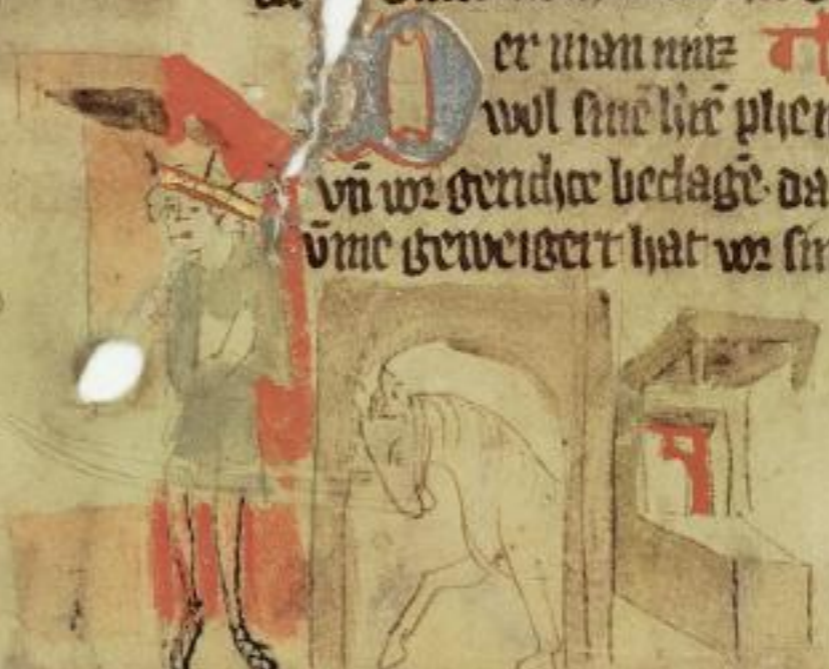 D er man muz
wol sinē h're phen
vn̄ vor gerichte beclagē. da
v̄me geweigert hat vor sin